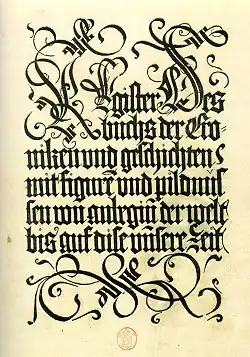 Register Des
buchs der Cro-
niken und geschichten
mit figurē und pildnus
sen von anbeginn der welt
bis auf dise unsere Zeit